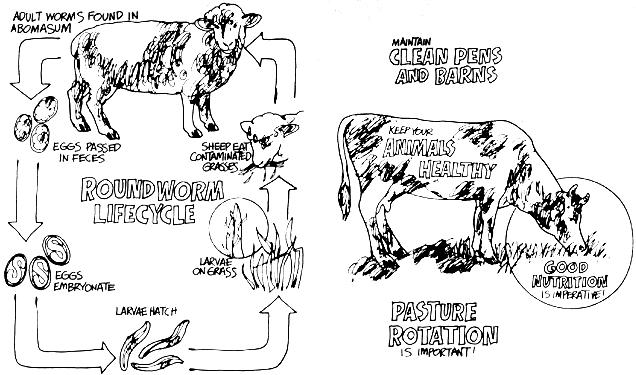 ADULT WORMS FOUND IN
ABOMASUM
EGGS PASSED
IN FECES
SHEEP EAT
CONTAMINATED
GRASSES
ROUNDWORM
LIFECYCLE
LARVAE
ON GRASS
EGGS
EMBRYONATE
LARVAE HATCH
MAINTAIN
CLEAN PENS
AND BARNS
KEEP YOUR
ANIMALS
HEALTHY
GOOD
NUTRITION
IS IMPERATIVE!
PASTURE
ROTATION
IS IMPORTANT!